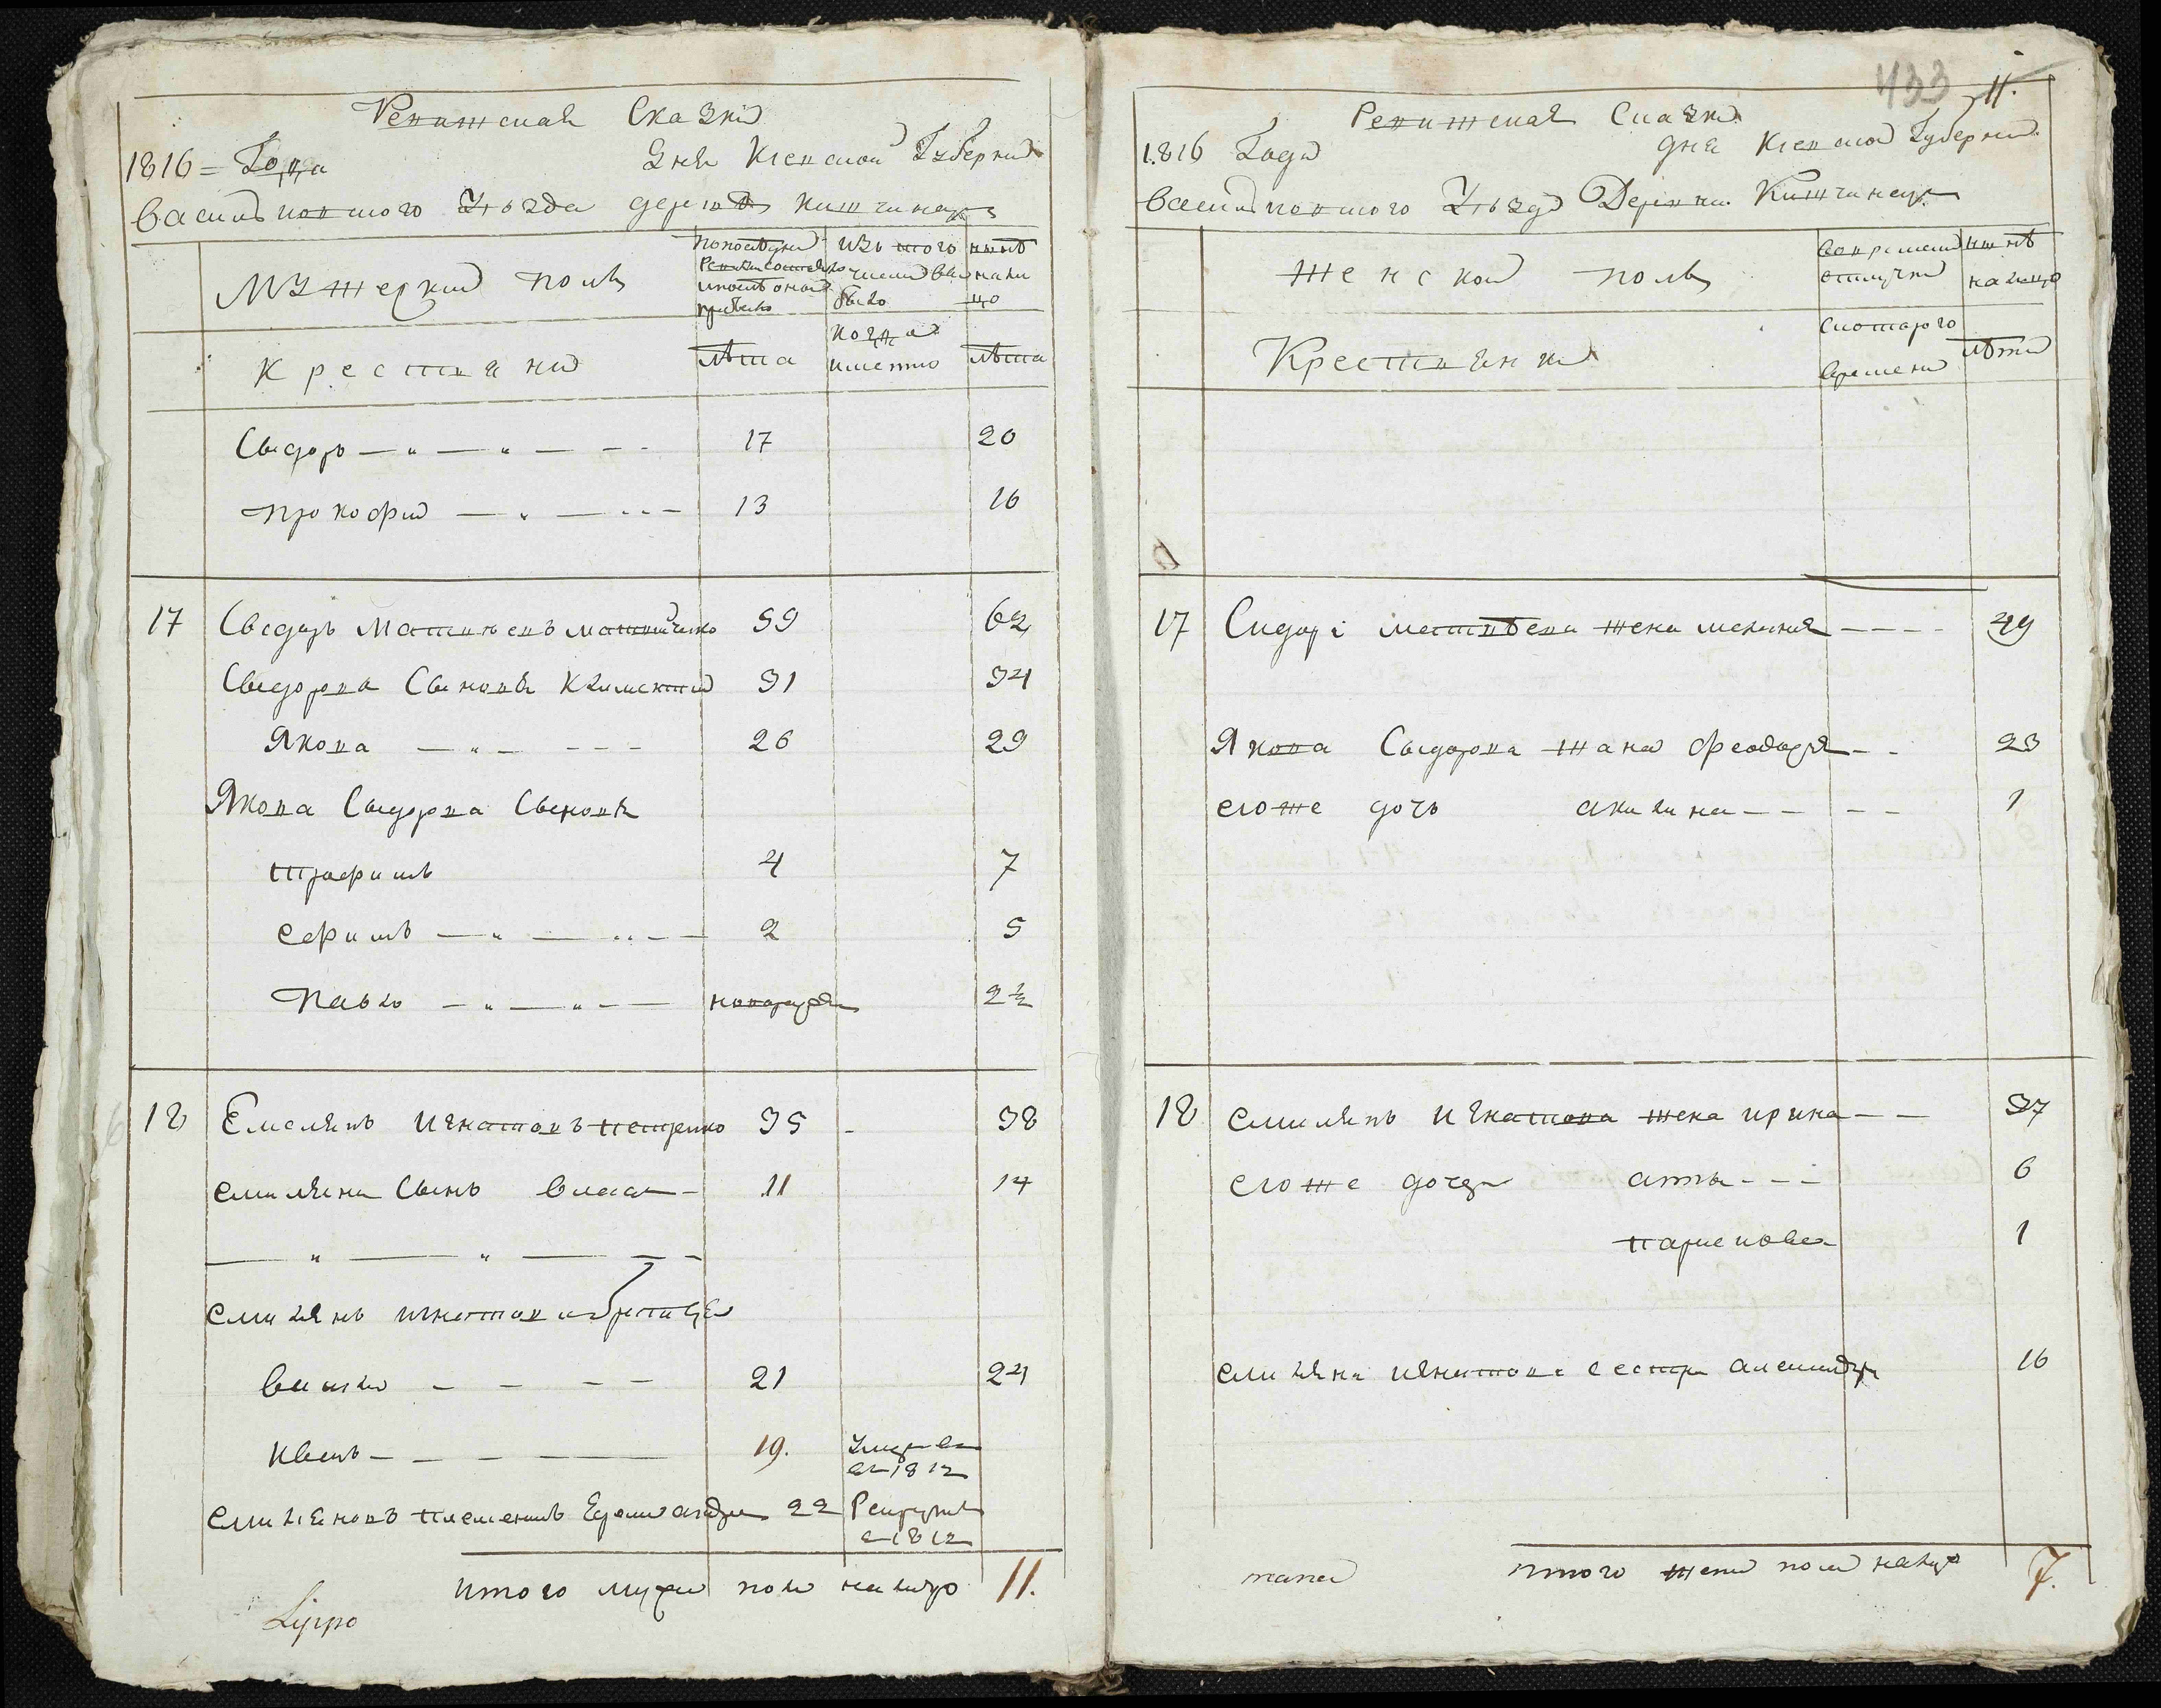 Ревижская Сказка
1816 = Года
Дня Киевской Губернии
Васильковского Уезда деревни Китчинец
Мужеский полъ
По последней Ревизии состояло и после оной прибыло
Изъ того числа выбыло
ныне на лицо
Крестьяни
лѣта
когда именно
лѣта
Сыдоръ 17 20
Прокофий 13 16
17 Сыдоръ Матвѣевъ 59 62
Сыдорва Сыновя Климентий 31 34
Якова 26 29
Якова Сыдорва Сыновя
Трофимъ 4 7
Ефимъ 2 5
Павло новорожден 2½
18 Емелянъ Игнатовъ Петренко 35 38
Емиляна Сынъ Власъ 11 14
Емилянъ Игнатов братя
Василь 21 24
Иванъ 19. умре в 1812
Емиляновъ племенникъ 22 Рекрут в 1812
Итого мужеска пола налицо 11.
433 11.
Ревижская Сказка
1816 Года
дня Киевской Губернии
Васильковского Уезда Деревни Китчинец
Женской полъ
Во временной отлучки
нынѣ на лицо
Крестьянки
С которого времени
лѣта
17 Сидора Матвѣева жена Мелания 49
Якова Сыдорва жана Феодосия 23
его же дочь Акилина 1
18 Емилянъ Игнатова жена Ирина 37
его же дочери Анна 6
1
Емиляна Игнатова сестра 16
Итого жена пола налицо 7.